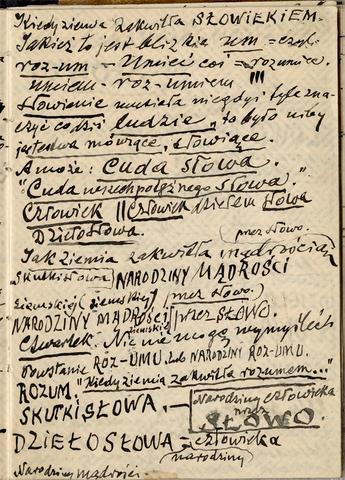 Kiedy ziemia zakwitła SŁOWIEKIEM.
Jakież to jest bliskie um = czyli
roz-um — Umieć coś = rozumieć.
umiem - roz-umiem !!!
Słowienie musiało niegdyś tyle zna-
czyć co dziś ludzie, to było niby
jestestwa mówiące, słowiące.
A może: Cuda słowa.
"Cuda wszechpotężnego słowa."
Człowiek || Człowiek dziełem słowa
Dziełosłowa.
(przez słowo.
Jak ziemia zakwitła mądrością
Skutki słowa) NARODZINY MĄDROŚCI
ziemskiej (ziemskiej) (przez słowo.)
NARODZINY MĄDROŚCI przez SŁOWO.
ziemskiej
Czwartek. Nic nie mogę wymyśleć
Powstanie ROZ-UMU. lub NARODZINY ROZ-UMU.
ROZUM. "Kiedy ziemia zakwitła rozumem..."
SKUTKI SŁOWA. — Narodziny człowieka
przez
SŁOWO.
DZIEŁOSŁOWA = człowieka
(narodziny)
Narodziny mądrości